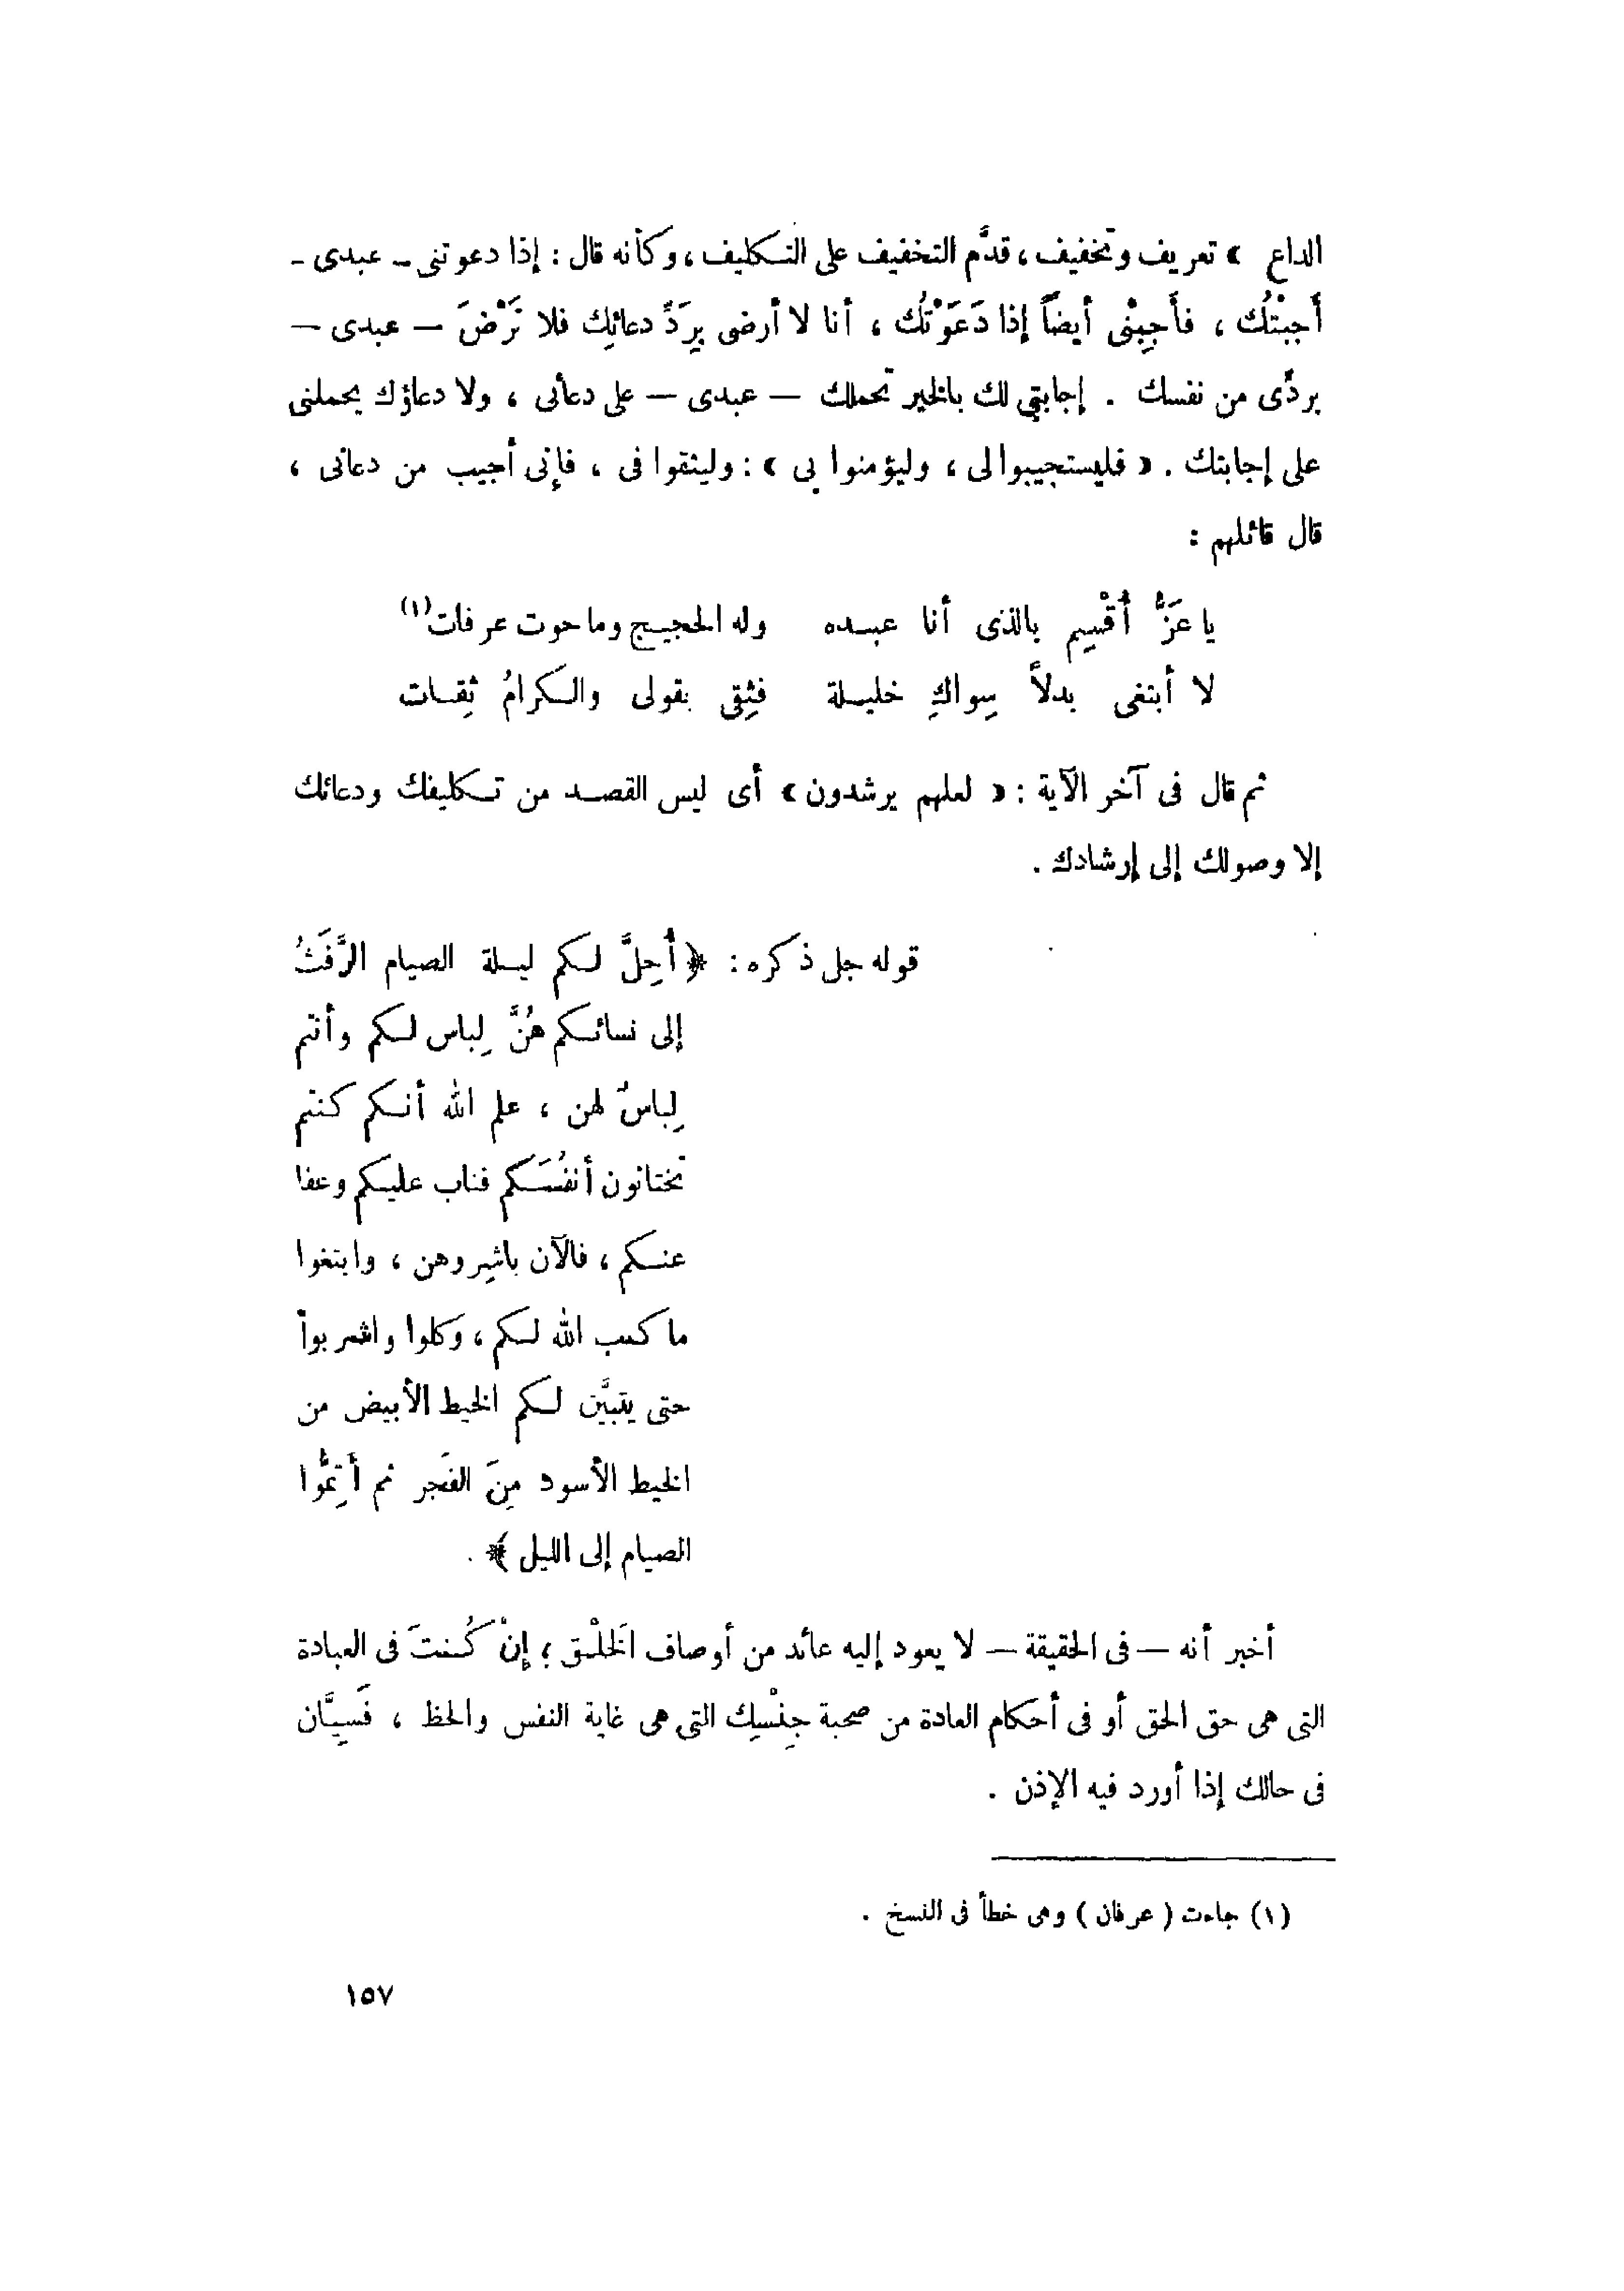 الداع » تعريف وتخفيف ، قدَّم التخفيف على التكليف ، وكأنه قال : إذا دعوتنى – عبدى –
أَجبْتُك ، فأَجِبْنى أيضاً إذا دَعَوْتُك ، أنا لا أرضى بِرَدِّ دعائِك فلا تَرْضَ – عبدى –
بردِّى من نفسك . إجابتى لك بالخير تحملك – عبدى – على دعائى ، ولا دعاؤك يحملنى
على إجابتك . « فليستجيبوا لى ، وليؤمنوا بى » : وليثقوا فى ، فإنى أجيب من دعانى ،
قال قائلهم :
يا عَزُّ أُقْسِم بالذى أنا عبده    وله الحجيج وما حوت عرفات(١)
لا أبتغى بدلاً سِواكِ خليلة    فثِقِى بقولى والكرامُ ثِقات
ثم قال فى آخر الآية : « لعلهم يرشدون » أى ليس القصد من تكليفك ودعائك
إلا وصولك إلى إرشادك .
قوله جل ذكره : ﴿ أُحِلَّ لكم ليلة الصيام الرَّفَثُ
إلى نسائكم هُنَّ لِباس لكم وأنتم
لِباسٌ لهن ، علم الله أنكم كنتم
تختانون أنفُسَكم فتاب عليكم وعفا
عنكم ، فالآن باشِروهن ، وابتغوا
ما كتب الله لكم ، وكلوا واشربوا
حتى يتبيَّن لكم الخيط الأبيض من
الخيط الأسود مِنَ الفَجر ثم أَتِمُّوا
الصيام إلى الليل ﴾ .
أخبر أنه – فى الحقيقة – لا يعود إليه عائد من أوصاف الخَلْق ؛ إنْ كُنتَ فى العبادة
التى هى حق الحق أو فى أحكام العادة من صحبة جِنْسِك التى هى غاية النفس والحظ ، فَسِيَّان
فى حالك إذا أورد فيه الإذن .
(١) جاءت ( عرفان ) وهى خطأ فى النسخ .
١٥٧